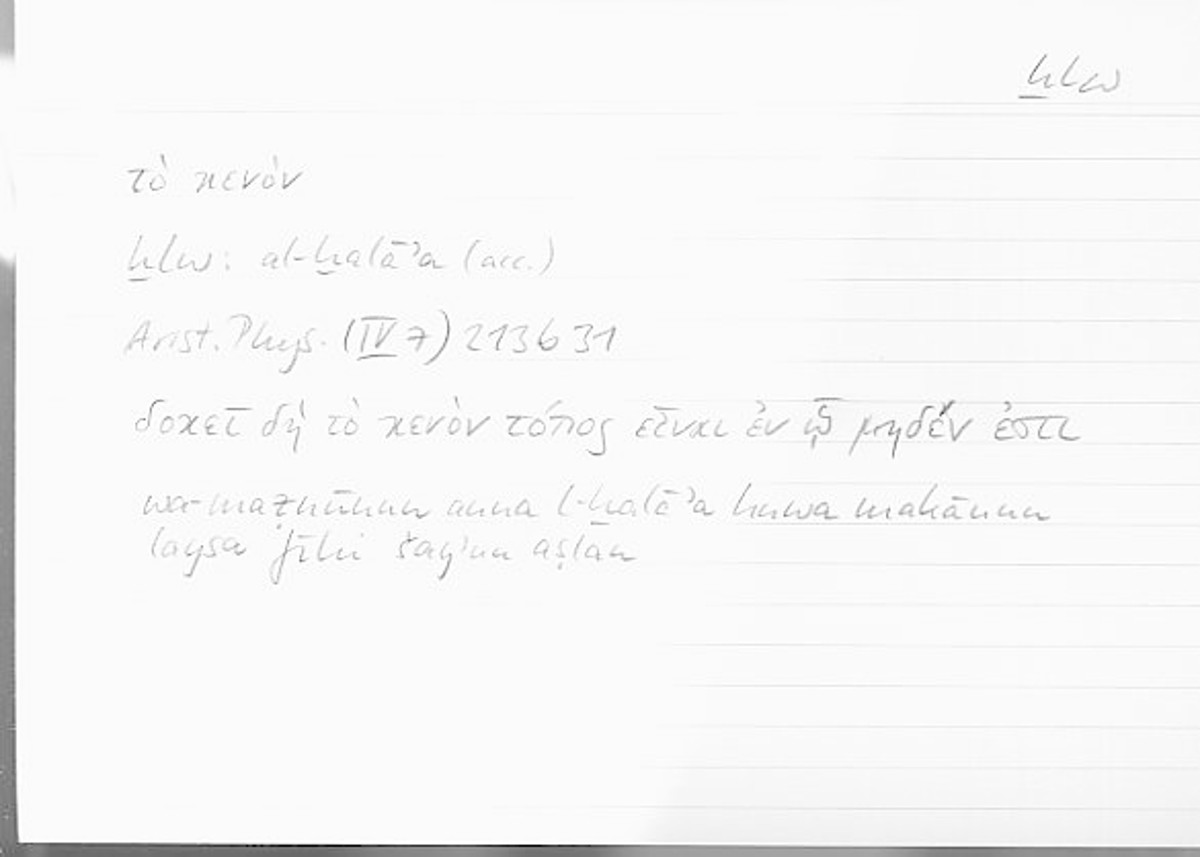 ḫlw
τὸ κενόν
ḫlw: al-ḫalāʾa (acc.)
Arist. Phys. (IV 7) 213b31
δοκεῖ δὴ τὸ κενὸν τόπος εἶναι ἐν ᾧ μηδέν ἐστι
wa-maẓnūnun anna l-ḫalāʾa huwa makānun
laysa fīhi šayʾun aṣlan